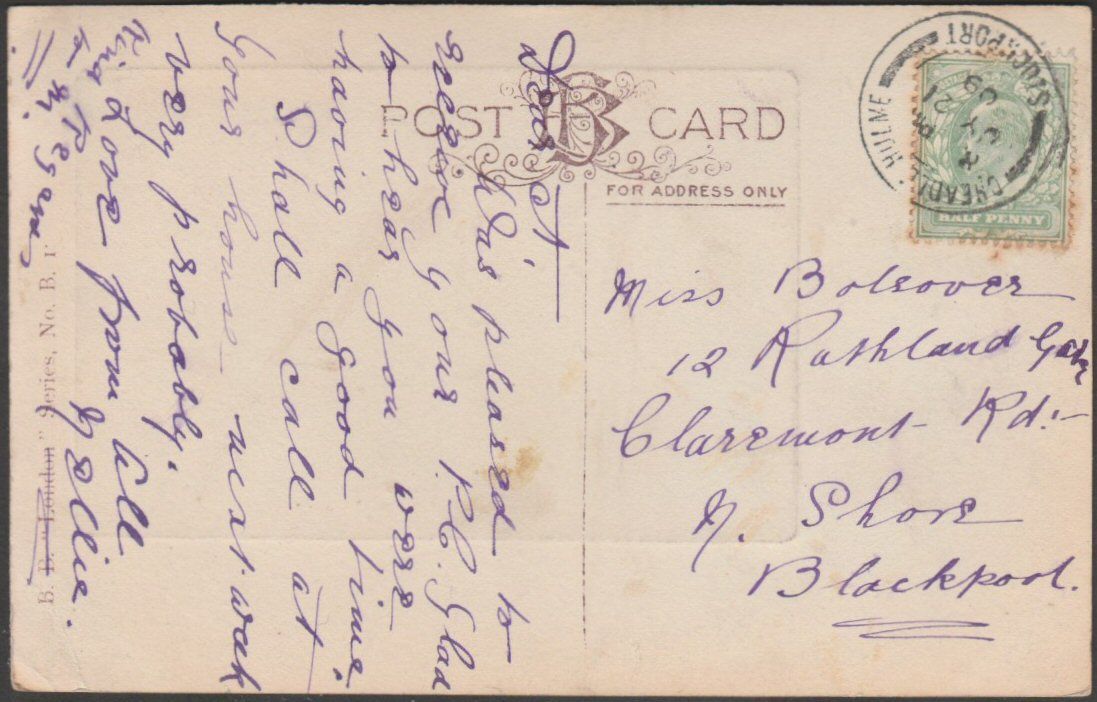 POST CARD
FOR ADDRESS ONLY
HALF PENNY
CHEADLE HULME
STOCKPORT
Miss Bolsover
12 Ruthland Gate
Claremont Rd:-
N. Shore
Blackpool.
Dear A
Was pleased to
receive your P.C. Glad
to hear you were
having a good time
Shall call at
your house next week
very probably.
Kind Love from All
to Nellie.
B. B. "London" Series, No. B. 1